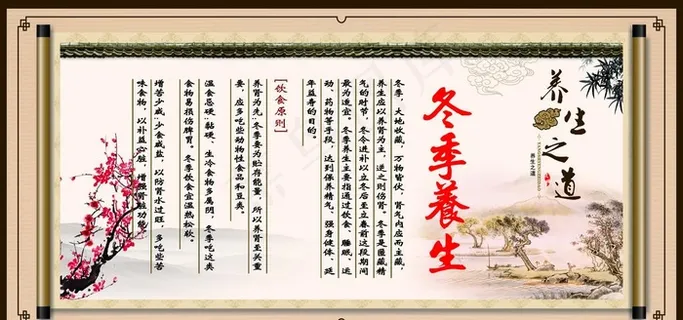 养生之道
养生之道
冬季養生
冬季，大地收藏，万物皆伏，肾气内应而主藏，
养生应以养肾为主，逆之则伤肾。冬季是匿藏精
气的时节，冬令进补以立冬后至立春前这段期间
最为适宜。冬季养生主要指通过饮食、睡眠、运
动、药物等手段，达到保养精气、强身健体、延
年益寿的目的。
[饮食原则]
养肾为先。冬季要为贮存能量，所以养肾至关重
要，应多吃些动物性食品和豆类。
温食忌硬：黏硬、生冷食物多属阴，冬季吃这类
食物易损伤脾胃。冬季饮食宜温热松软。
增苦少咸。少食咸盐，以防肾水过旺，多吃些苦
味食物，以补益心脏，增强肾脏功能。